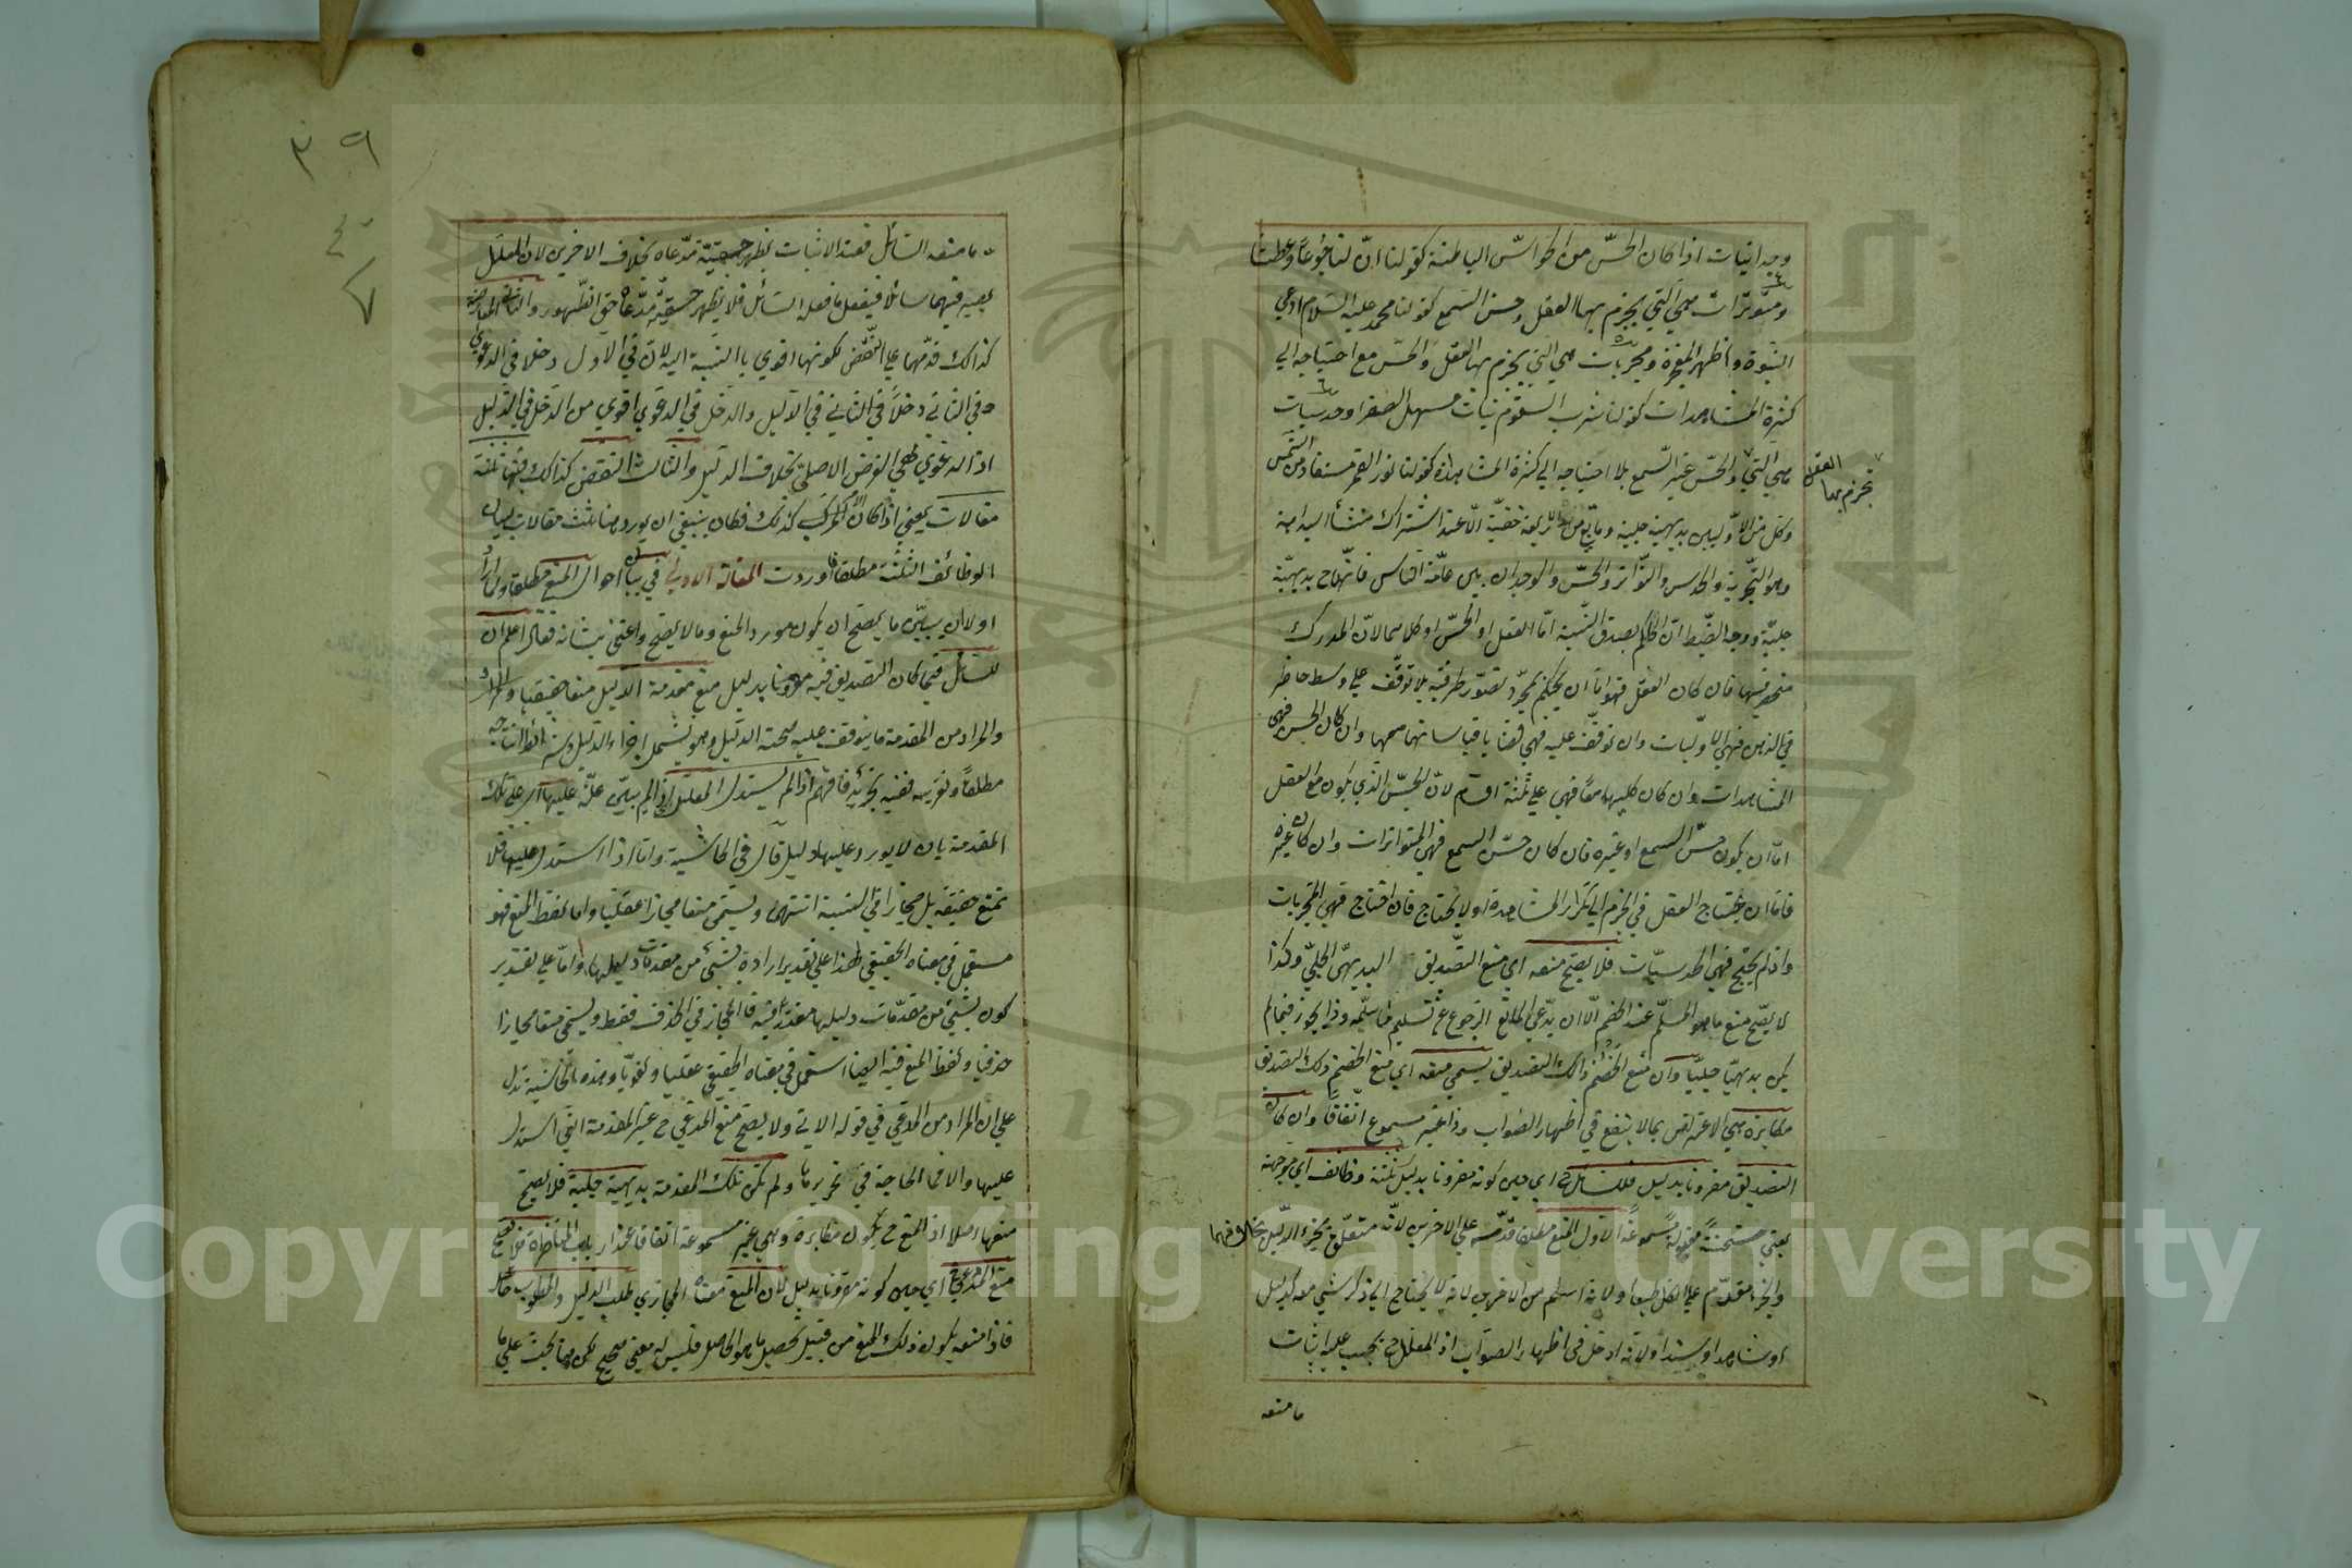 وجدانيات اذا كان الحسّ من الحواسّ الباطنة كقولنا انّ لنا جوعاً وعطشا
ومتواترات وهي التي يجزم بها العقل وحسن السمع كقولنا محمد عليه السلام ادعي
النبوة واظهر المعجزة ومجربات وهي التي يجزم بها العقل والحسّ مع احتياجه الي
كثرة المشاهدات كقولنا شرب السقمونيات مسهل الصفرا وحدسيات
وهي التي والحسّ غير السمع بلا احتياجه الي كثرة المشاهدة كقولنا نور القمر مستفاد من الشمس
يجزم بها العقل
وكل من الاوّليين بديهية جلية وما بقي من الاربعة خفيّة الّا عند اشتراك منشأ البداهة
وهو التجربة والحدس والتواتر والحسّ والوجدان بين عامّة الناس فانّها ح بديهيّة
جليّة ووجه الضبط انّ الحاكم بصدق النسبة امّا العقل او الحسّ او كلاهما لانّ المدرك
منحصر فيها فان كان العقل فهو امّا ان يحكم بمجرّد تصوّر طرفيه بلا توقّف علي وسط حاضر
في الذهن فهي الاوّليات وان توقّف عليه فهي قضايا قياساتها معها وان كان الحس فهي
المشاهدات وان كان كليهما معاً فهي علي ثلثة اقسام لانّ الحسّ الذي يكون مع العقل
امّا ان يكون حسّ السمع او غيره فان كان حسّ السمع فهي المتواترات وان كان غيره
فامّا ان يحتاج العقل في الجزم الي تكرار المشاهدة او لا يحتاج فان احتاج فهي المجربات
وان لم يحتج فهي الحدسيّات فلا يصحّ منعه اي منع التصديق البديهيّ الجليّ وكذا
لا يصّح منع ما هو المسلّم عند الخصم الّا ان يدّعي المانع الرجوع عن تسليم ما سلّمه وذا يجوز فيما لم
يكن بديهيّا جليّا وان منع الخصم ذالك التصديق يسمي منعه اي منع الخصم ذلك التصديق
مكابرة وهي الاعتراض بما لا ينفع في اظهار الصواب وذا غير مسموع اتفاقاً وان كان
التصديق مقرونا بدليل فللسائل ح اي حين كونه مقرونا بدليل ثلثة وظائف اي موجهة
يعني مستحسنة مقبولة مسموعة الاول المنع مطلقا قدّمه علي الاخرين لانّه متعلّق بجزء الدليل بخلافهما
والجزء مقدّم علي الكل طبعا ولانه اسلم من الاخرين لانه لا يحتاج الي ذكر شئ معه كدليل
او شاهد او سند ولانه ادخل في اظهار الصواب اذ المعلل ح يجب عليه اثبات
ما منعه
٣٩
ما منعه السائل فعند الاثبات يظهر حقيّة مدّعاه بخلاف الاخرين لان المعلل
يصير فيهما سائلا فيفعل ما فعله السائل فلا يظهر حقيّة مدّعاه حق الظهور والثاني المعارضة
كذالك قدّمها علي النقض لكونها اقوي بالنسبة اليه لان في الاول دخلا في الدعوي
وفي الثاني دخلاً في الدليل والدخل في الدعوي اقوي من الدخل في الدليل
اذ الدعوي هي الغرض الاصلي بخلاف الدليل والثالث النقض كذالك فهنا ثلثة
مقالات يعني اذا كان الامر كذلك فكان ينبغي ان يورد هنا ثلث مقالات لبيان
الوظائف الثلثة مطلقا فاوردت المقالة الاولي في بيان احوال المنع مطلقا ولما اراد
اولا ان يبيّن ما يصحّ ان يكون مورد المنع وما لا يصحّ واعتني بشانه فقال اعلم ان
للسائل فيما كان التصديق فيه مقرونا بدليل منع مقدمة الدليل منعا حقيقيا
والمراد من المقدمة ما يتوقف عليه صحة الدليل وهو يشمل اجزاء الدليل وشرائط انتاجه
مطلقاً وتقريبه ففيه تجريد فافهم اذا لم يستدل المعلل اي اذا لم يبيّن علّة عليها اي علي تلك
المقدمة بان لا يورد عليها دليل قال في الحاشية واما اذا استدل عليها فلا
تمنع حقيقة بل مجازا في النسبة انتهي ويسمّي منعا مجازا عقليا واما لفظ المنع فهو
مستعمل في معناه الحقيقي هذا علي تقدير ارادة شئ من مقدمات دليلها واما علي تقدير
كون شئ من مقدّمات دليلها مقدّرا فيه فالمجاز في الحذف فقط ويسمّي منعا مجازا
حذفيا ولفظ المنع فيه ايضا استعمل في معناه الحقيقي عقليا ولغويّا وهذه الحاشية تدل
علي ان المراد من المدعي في قوله الاتي ولا يصحّ منع المدعي ح غير المقدمة التي استدل
عليها والا فما الحاجة في تحريرها ولم تكن تلك المقدمة بديهية جلية فلا يصحّ
منعها اصلا اذ المنع ح يكون مكابرة وهي غير مسموعة اتفاقا عند ارباب المناظرة فلا يصح
منع المدعي ح اي حين كونه مقرونا بدليل لان المنع معناه المجازي طلب الدليل والمطلوب حاصل
فاذا منعه يكون ذلك المنع من قبيل تحصيل ما هو الحاصل فليس له معني صحيح لكن هنا بحث علي ما